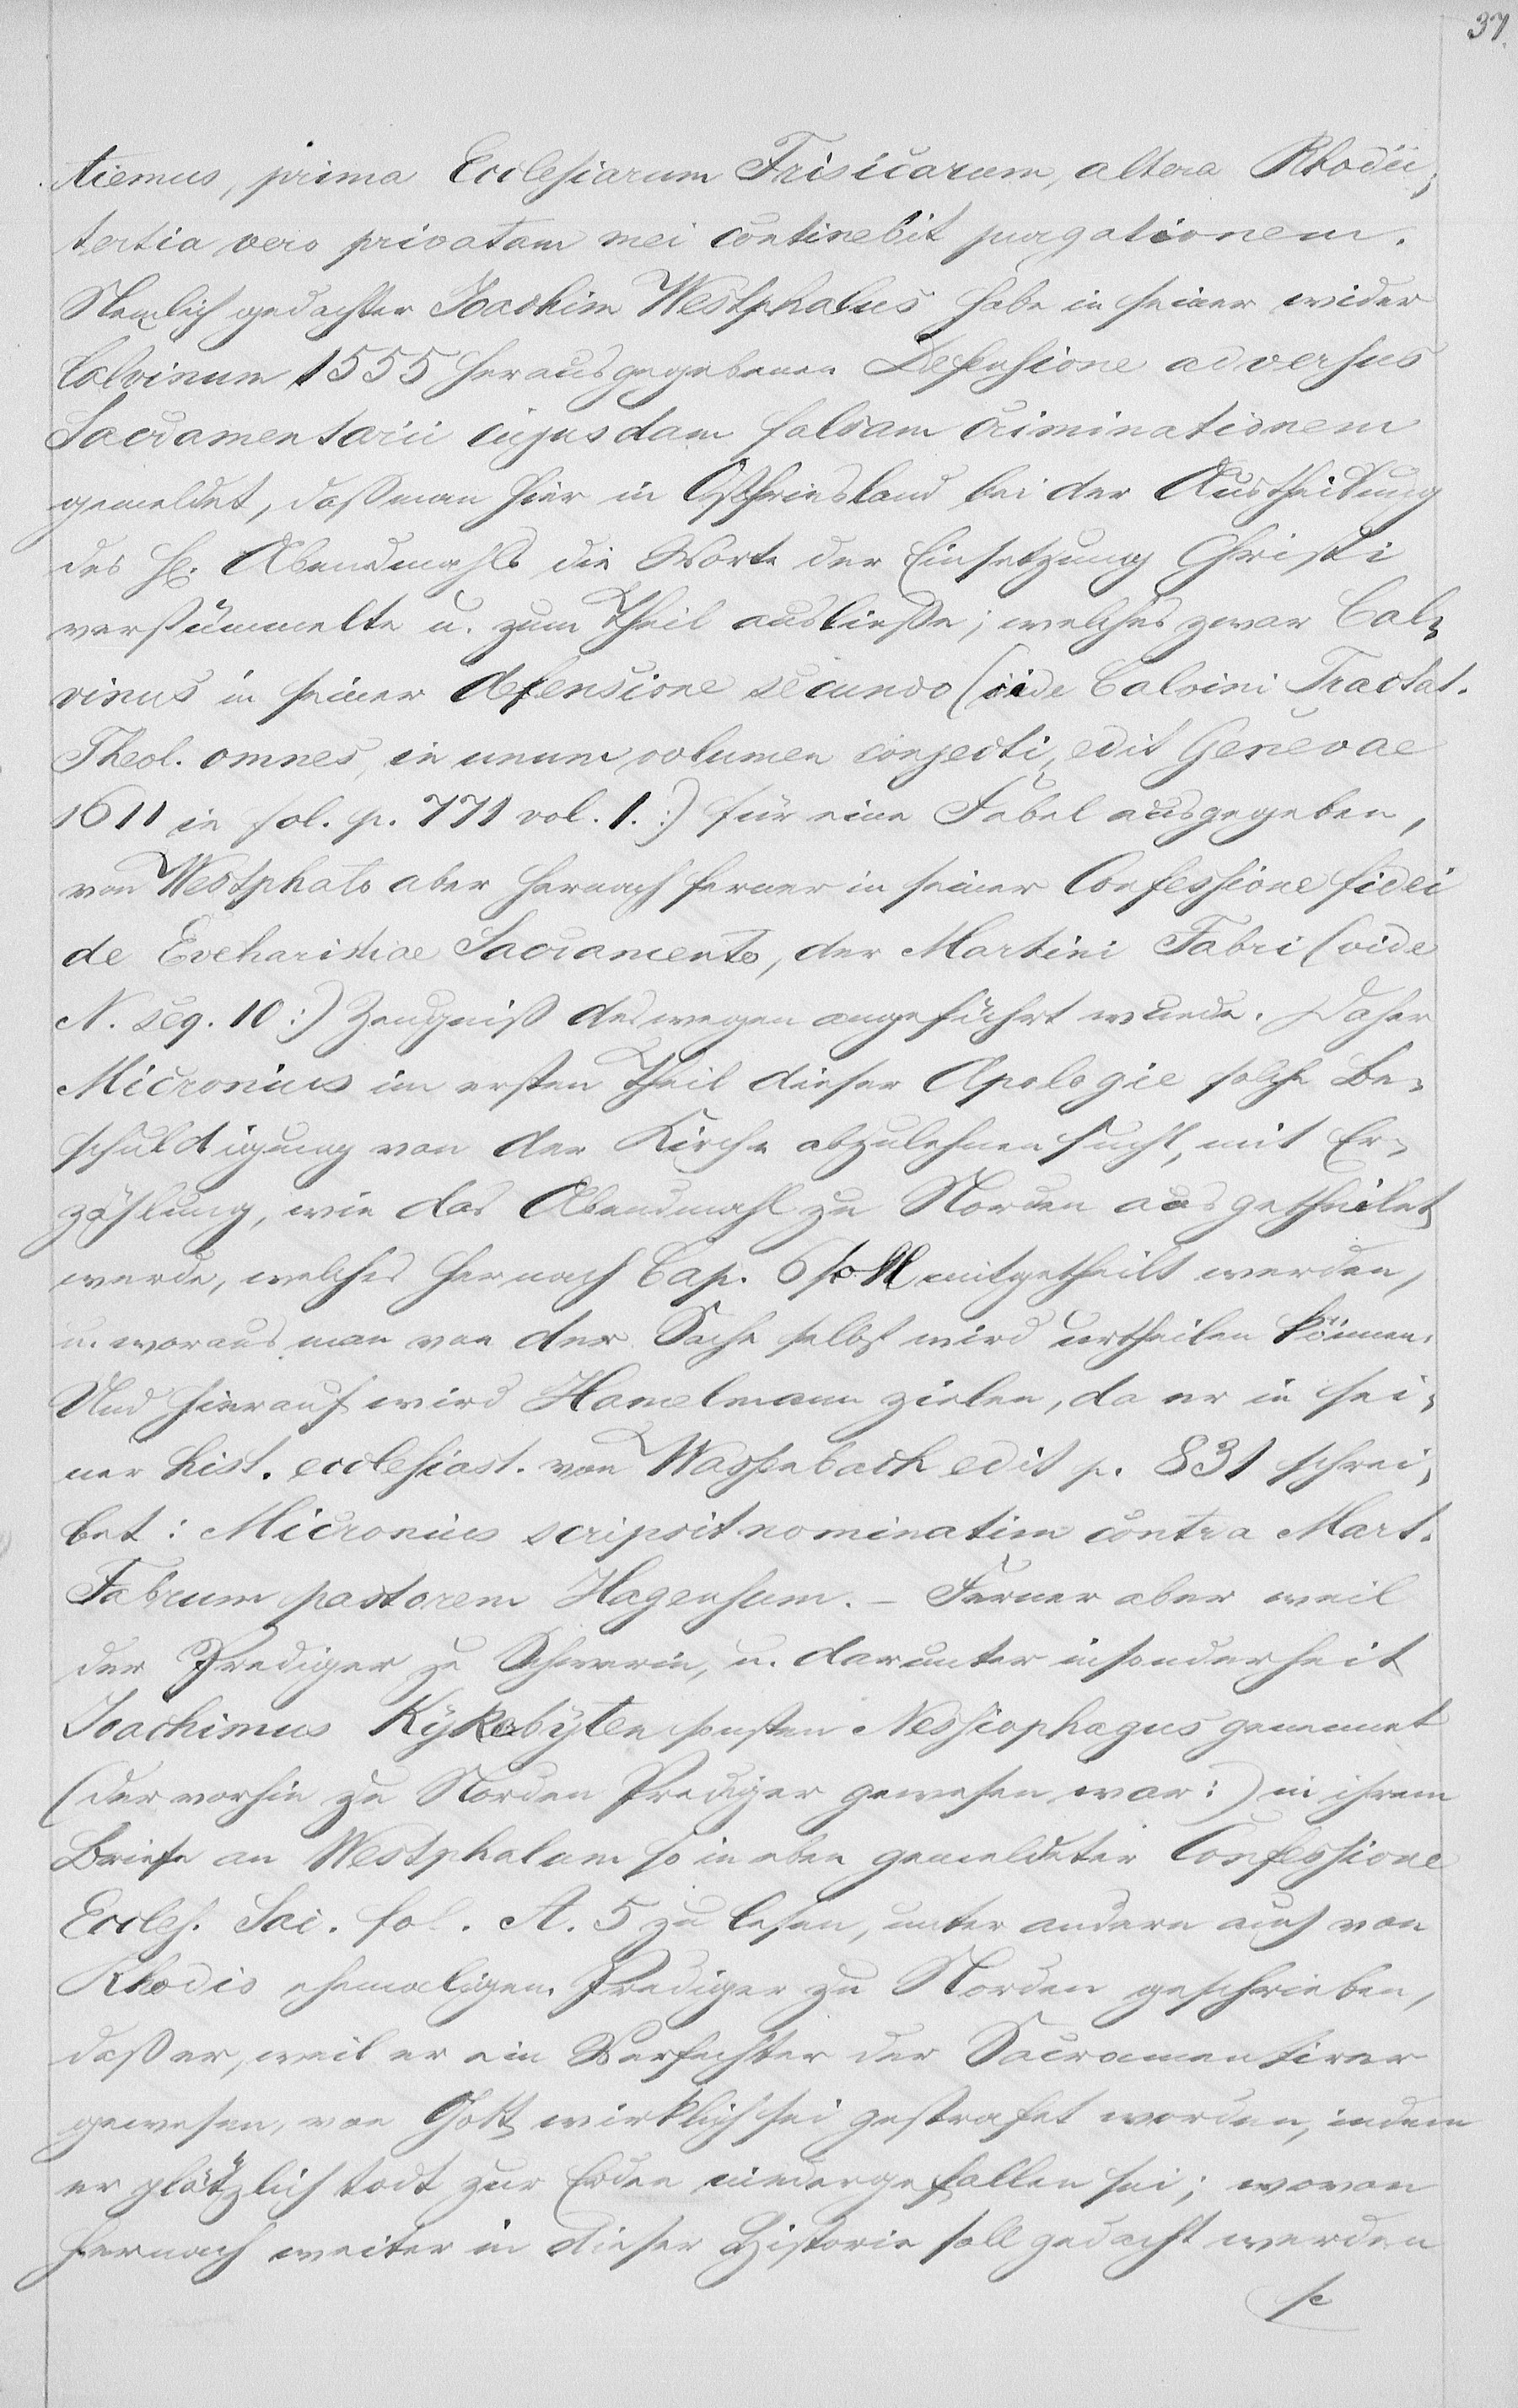 37.
tiemus, prima Ecclesiarum Frisicarum, altera Rhodii,
tertia vero privatam mei continebit purgationem.
Nemlich gedachter Joachim Westphalus habe in seiner wider
Calvinum 1555 herausgegebenen Defensione adversus
Sacramentarii cujusdam falsam criminationem
gemeldet, daß man hier in Ostfriesland bei der Austheilung
des H. Abendmahls die Worte der Einsetzung Christi
verstümmelte u. zum Theil ausließe; welches zwar Cal-
vinus in seiner defensione secunda (vide Calvini Tractat.
Theol. omnes, in unum volumen conjecti, edit Genevae
1611 in fol. p. 771 vol. 1.:) für eine Fabel ausgegeben,
von Westphalo aber hernach ferner in seiner Confessione fidei
de Eucharistiae Sacramento, der Martini Fabri (vide
N. seq. 10:) Zeugniß deswegen angeführt wurde. Daher
Micronius im ersten Theil dieser Apologie solche Be-
schuldigung von der Kirche abzulehnen sucht, mit Er-
zählung, wie das Abendmahl zu Norden ausgetheilet
werde, welches hernach Cap. 6 soll mitgetheilt werden,
u. woraus man von der Sache selbst wird urtheilen können.
Und hierauf wird Hamelmann zielen, da er in sei-
ner hist. ecclesiast. von Wasserbach edit p. 831 schrei-
bet: Micronius scripsit nominatim contra Mart.
Fabrum pastorem Hagensem. – Ferner aber weil
der Prediger zu Schwerin, u. darunter insonderheit
Joachimus Kükebyten sonsten Nessiophagus genennet
(der vorhin zu Norden Prediger gewesen war:) in ihrem
Briefe an Westphalum so in eben gemeldeter Confessione
Eccles. Sax. fol. A. 5 zu lesen, unter andern auch von
Rhodis ehemaligem Prediger zu Norden geschrieben,
daß er, weil er ein Verfechter der Sacramentirer
gewesen, von Gott wirklich sei gestrafet worden, indem
er plötzlich todt zur Erden niedergefallen sei; wovon
hernach weiter in dieser Historie soll gedacht werden